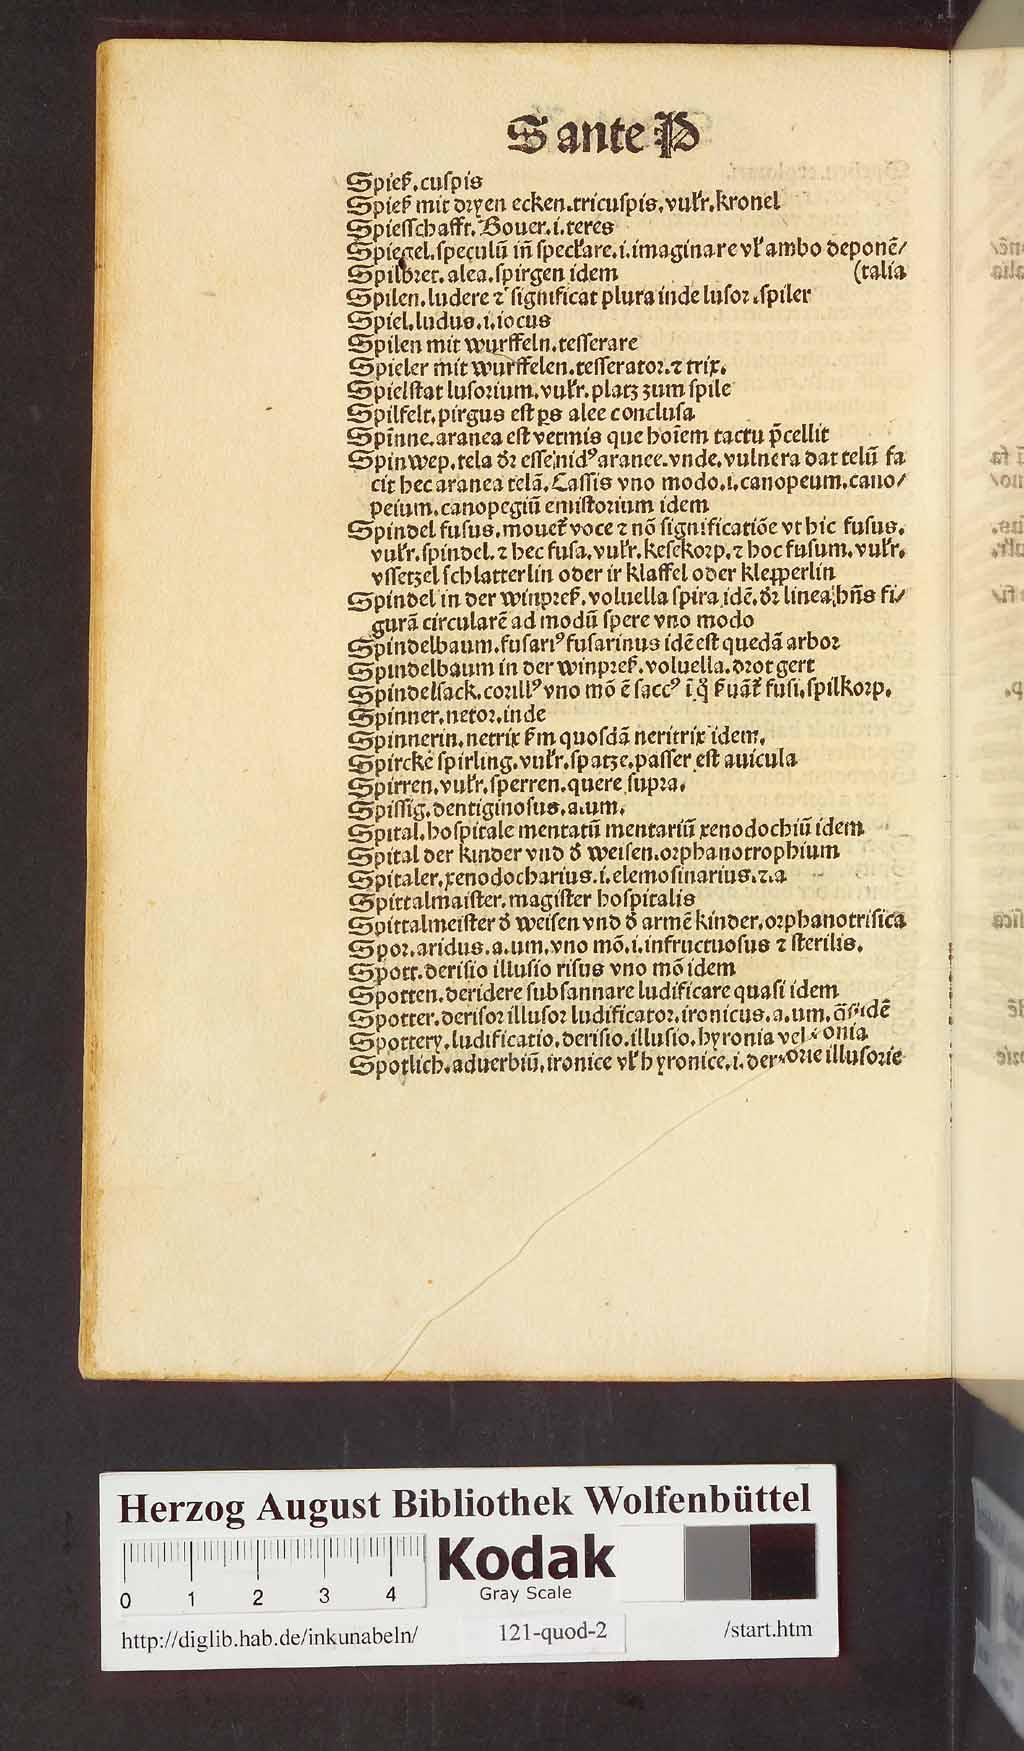 S ante P
Spieß.cuspis
Spieß mit dryen ecken.tricuspis.vulr.kronel
Spiesschafft. Bouer.i.teres
Spiegel.speculū in̄ speclare.i.imaginare vl' ambo deponē/
Spilbret.alea.spirgen idem (talia
Spilen.ludere ⁊ significat plura inde lusor.spiler
Spiel.ludus.i.iocus
Spilen mit wurffeln.tesserare
Spieler mit wurffelen.tesserator.⁊ trix.
Spielstat lusorium.vulr.platz zum spile
Spilfelt.pirgus est ꝑs alee conclusa
Spinne.aranea est vermis que hoīem tactu p̄cellit
Spinwep.tela dr̄ esse nidꝰ aranee.vnde.vulnera dat telū fa
cit hec aranea telā.Cassis vno modo.i.canopeum.cano/
peium.canopegiū emistorium idem
Spindel fusus.mouet᷑ voce ⁊ nō significatiōe vt hic fusus.
vulr.spindel.⁊ hec fusa.vulr.keſekorp.⁊ hoc fusum.vulr.
vssetzel schlatterlin oder ir klaffel oder klepperlin
Spindel in der winpreß.voluella spira idē.dr̄ linea hn̄s fi/
gurā circularē ad modū spere vno modo
Spindelbaum.fusariꝰ fusarinus idē est quedā arbor
Spindelbaum in der winpreß.voluella.drot gert
Spindelsack.corillꝰ vno mō ē saccꝰ ī q̊ ßuāt᷑ fusi.spilkorp.
Spinner.netor.inde
Spinnerin.netrix ßm quosdā neritrix idem.
Spirckē spirling.vulr.spatze.passer est auicula
Spirren.vulr.sperren.quere supra.
Spissig.dentiginosus.a.um.
Spital.hospitale mentatū mentariū xenodochiū idem
Spital der kinder vnd d̓ weisen.orphanotrophium
Spitaler.xenodocharius.i.elemosinarius.⁊.a
Spittalmaister.magister hospitalis
Spittalmeister d̓ weisen vnd d̓ armē kinder.orphanotrisica
Spor.aridus.a.um.vno mō.i.infructuosus ⁊ sterilis.
Spott.derisio illusio risus vno mō idem
Spotten.deridere subsannare ludificare quasi idem
Spotter.derisor illusor ludificator.ironicus.a.um.q̄si idē
Spottery.ludificatio.derisio.illusio.hyronia vel ironia
Spotlich.aduerbiū.ironice vl' hyronice.i.derisorie illusorie
Herzog August Bibliothek Wolfenbüttel
0 1 2 3 4
Kodak
Gray Scale
http://diglib.hab.de/inkunabeln/ 121-quod-2 /start.htm